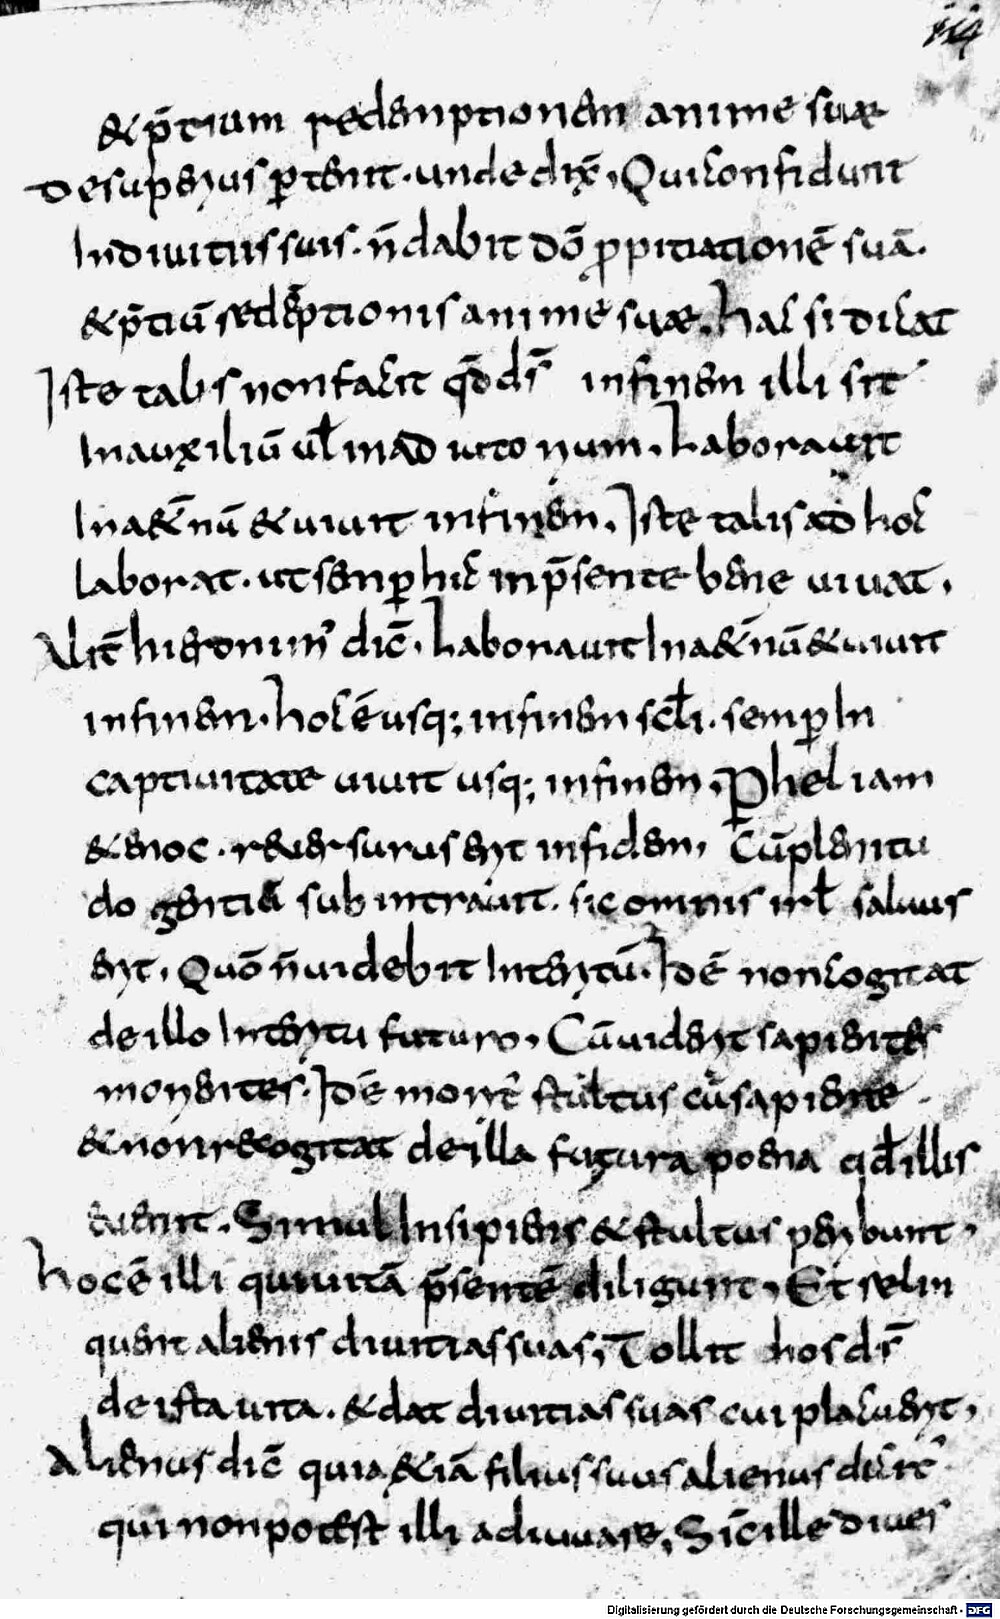 114
& p̄tium redemptionem anime suæ
Desuperius ꝑtenit. unde dix̄, Qui confidunt
Indiuitiis suis. n̄ dabit dō ꝓpitiationē suā.
& p̄tiū redēptionis anime suæ, hac si dicat
Iste talis non facit qd̄ ds̄ infinem illi sit
Inauxiliū ul̄ inad iutorium. Laborauit
Ina&̄nū & uiuit infinem. Iste talis ad hoc
laborat. ut semꝑ hic inp̄sente bene uiuat.
Alit̄ hieronim' dic̄. Laborauit Ina&̄nū & uiuit
infinem. hoc ē usq; infinem scl̄i. semꝑ In
captiuitate uiuit usq; infinem, hel iam
& enoc. reuersurus erit infidem, Cū plenitu
do gentiū sub intrauit. sic omnis irl̄ saluus
erit, Quō n̄ uidebit Interitū. Idē non cogitat
de illo Interitu futuro, Cū uiderit sapientes
morientes. Idē morit̄ stultus cū sapiente
& non recogitat de illa futura poena qd̄ illis
euenit. Simul Insipiens & stultus peribunt,
hoc ē illi qui uitā p̄sentē diligunt, Et relin
quent alienis diuitias suas, Tollit hos ds̄
de ista uita. & dat diuitias suas cui placuerit,
Alienus dic̄ quia & iā filius suus alienus dicit̄
qui non potest illi adiuuare, Sic ille diues
Digitalisierung gefördert durch die Deutsche Forschungsgemeinschaft - DFG